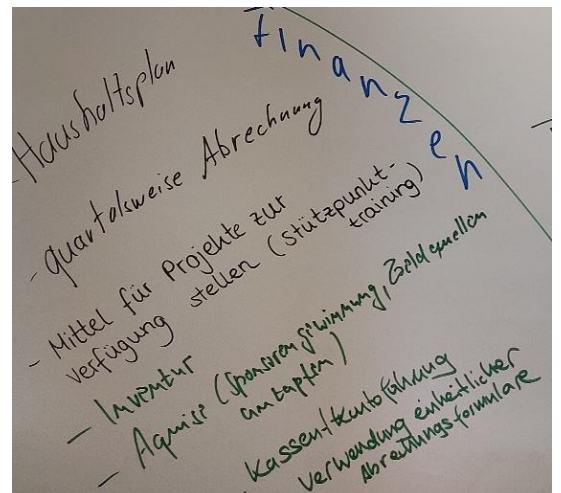 Finanzen
- Haushaltsplan
- quartalsweise Abrechnung
- Mittel für Projekte zur
verfügung stellen (Stützpunkt-
training)
- Inventur
- Aquise (Sponsorengewinnung, Geldquellen
antapfen)
Kassen-/Kontoführung
Verwendung einheitlicher
Abrechnungsformulare